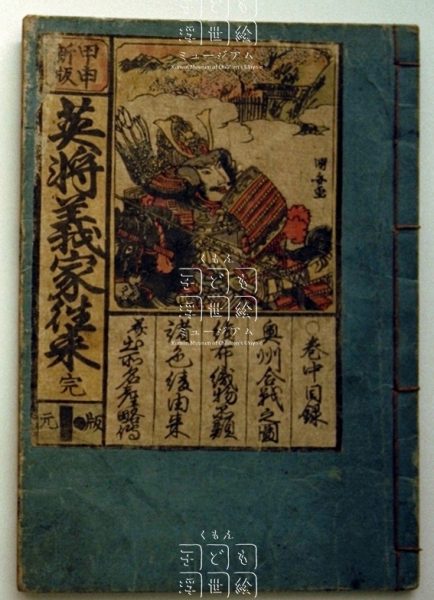 甲申
新版
英将義家往来 完
元 版
国安画
○巻中目録
奥州合戦之圖
絹布織物名類
諸色緩由来
諸国名産略傳
くもん
子ども
浮世絵
ミュージアム
Kumon Museum of Children's Ukiyo-e
くもん
子ども
浮世絵
ミュージアム
Kumon Museum of Children's Ukiyo-e
くもん
子ども
浮世絵